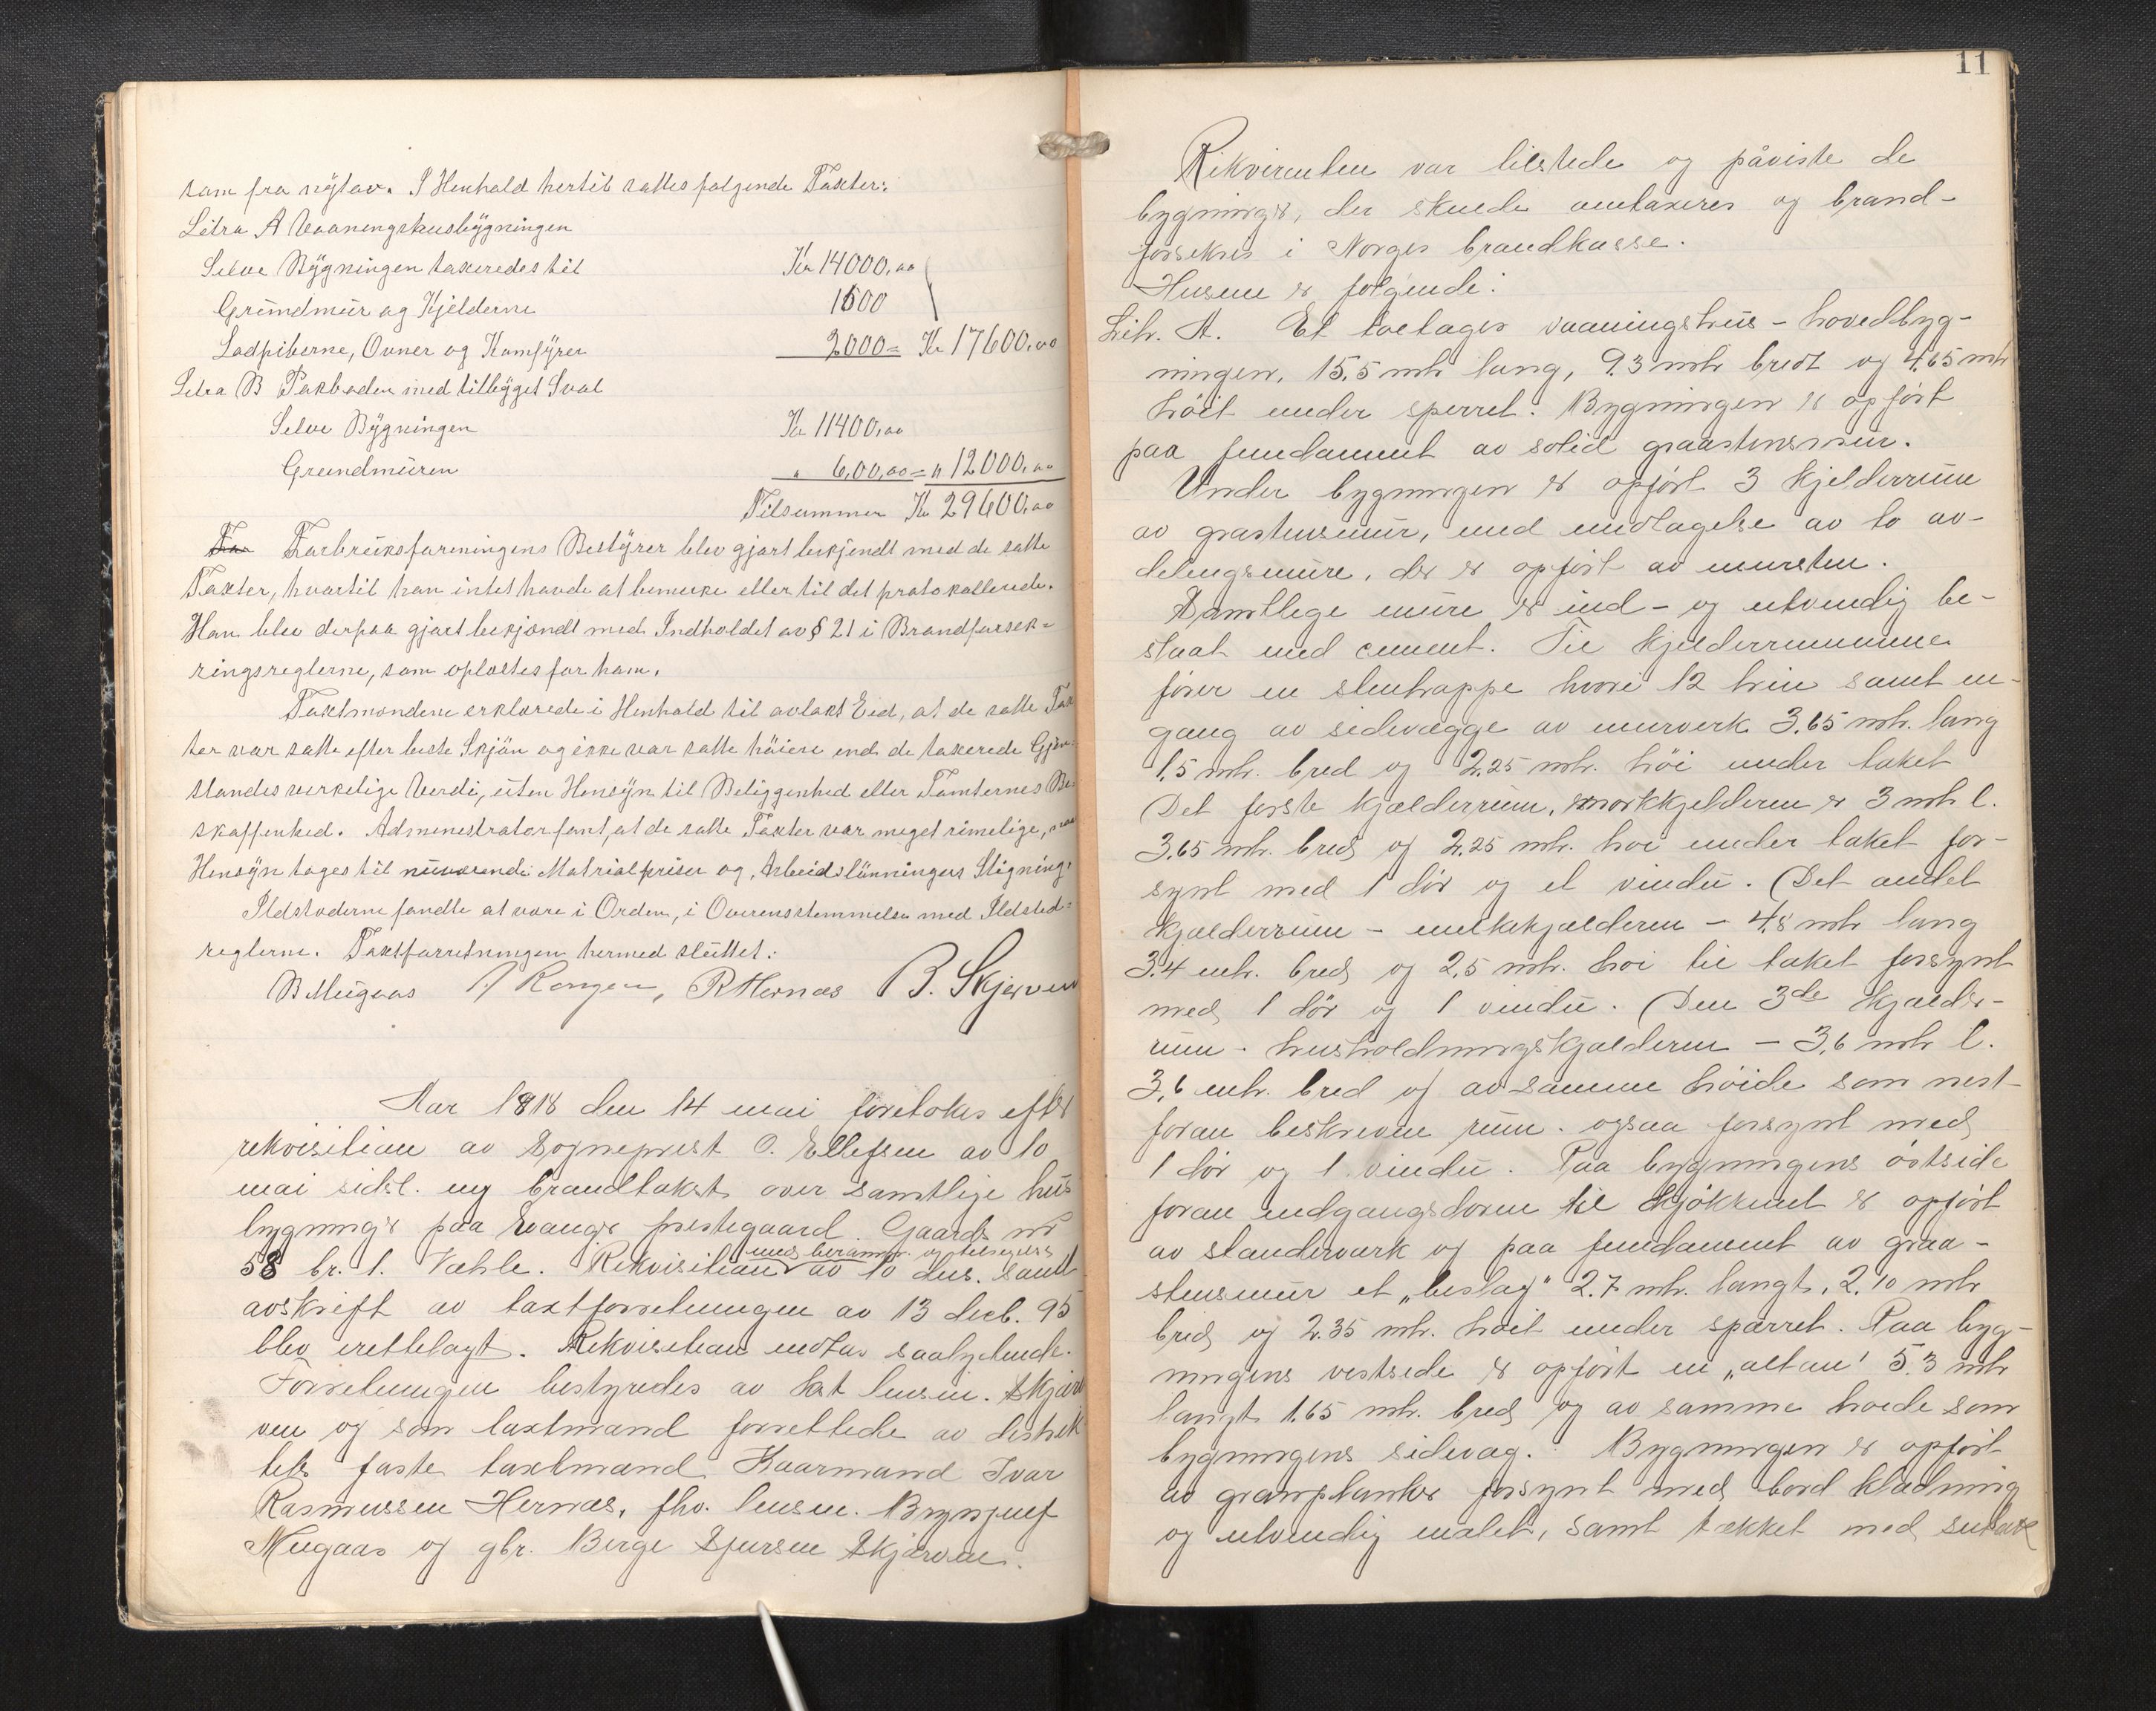 som fra nytav. I Henhold hertil sattes følgende Taxter:
Litra A Vaaningshusbygningen
Selve Bygningen taxeredes til Kr 14000,00
Grundmur og Kjelderne 1600
Ladpiberne, Ovner og Komfyrer 2000 = Kr 17600,00
Litra B Pakboden med tilbygget Sval
Selve Bygningen Kr 11400,00
Grundmuren " 600,00 = " 12000,00
Tilsammen Kr 29600,00
Forbruksforeningens Bestyrer blev gjort bekjendt med de satte
Taxter, hvortil han intet havde at bemerke eller til det protokollerede.
Han blev derpaa gjort bekjendt med Indholdet av § 21 i Brandforsek-
ringsreglerne, som oplæstes for ham.
Taxtmændene erklærede i Henhold til avlakt Eid, at de satte Tax
ter var satte efter beste Skjön og ikke var satte höiere end de taxerede Gjen-
standes verkelige Verdi, uten Hensyn til Beliggenhed eller Tomternes Be-
skaffenhed. Admenestrator fant, at de satte Taxter var meget rimelige, naar
Hensyn toges til nuværende Matrialpriser og Arbeidslönningers Stigning.
Ildstæderne fandtes at være i Orden, i Overensstemmelse med Ildsted-
reglerne. Taxtforretningen hermed sluttet:
B Mugaas Rongen, R Hernæs B. Skjerven
Aar 1918 den 14 mai foretokes efter
rekvisition av Sogneprest O. Ellefsen av 10
mai sidstl. ny brandtakst over samtlige hus
bygninger paa Vangs prestegaard. Gaards nr
med beramm. og tilsigelse
58 br. 1. Væhle. Rekvisition av 10 dns. samt
avskrift av taxtforretningen av 13 decb. 95
blev irettelagt. Rekvisition indtas saalydende.
Forretningen bestyredes av lensm. Skjer
ven og som taxtmænd forrettede av distrik
tets faste taxtmænd Kaarmand Ivar
Rasmussen Hernæs, fhv. lensm. Brynjulf
Mugaas og gbr. Berge Sjursen Skjerven.
11
Rekvirenten var tilstede og påviste de
bygninger, der skulde omtaxeres og brand-
forsekres i Norges brandkasse.
Husene er følgende:
Litr. A. Et toetages vaaningshus - hovedbyg-
ningen, 15.5 mtr lang, 9.3 mtr bredt og 4.65 mtr
höit under sperret. Bygningen er opført
paa fundament av solid graastensmur.
Under bygningen er opført 3 kjelderrum
av graastensmur, med undtagelse av to av-
delingsmure, der er opført av mursten.
Samtlege mure er ind- og utvendig be-
slaat med cement. Til kjelderrummene
fører en stentrappe hvori 12 trin samt en-
gang av sidevægge av murverk 3.65 mtr. lang
1.5 mtr. bred og 2.25 mtr. höi under taket
Det første kjælderrum, mørkkjelderen er 3 mtr l.
3.65 mtr. bred og 2.25 mtr. høi under taket for-
synt med 1 dör og et vindu. Det andet
kjælderrum - melkekjælderen - 4.8 mtr lang
3.4 mtr. bred og 2.5 mtr. høi til taket forsynt
med 1 dør og 1 vindu. Den 3de kjælder-
rum - husholdningskjælderen - 3,6 mtr l.
3,6 mtr. bred og av samme höide som nest
foran beskrevne rum - ogsaa forsynt med
1 dør og 1 vindu. Paa bygningens östside
foran indgangsdøren til kjøkkenet er opført
av standerværk og paa fundament av graa-
stensmur et „beslag" 2.7 mtr. langt, 2.10 mtr
bred og 2.35 mtr. höit under spærret. Paa byg-
ningens vestside er opført en „altan" 5.3 mtr
langt 1.65 mtr. bred og av samme høide som
bygningens sidevæg. Bygningen er opført
av granplanker forsynt med bord klædning
og utvendig malet, samt tækket med